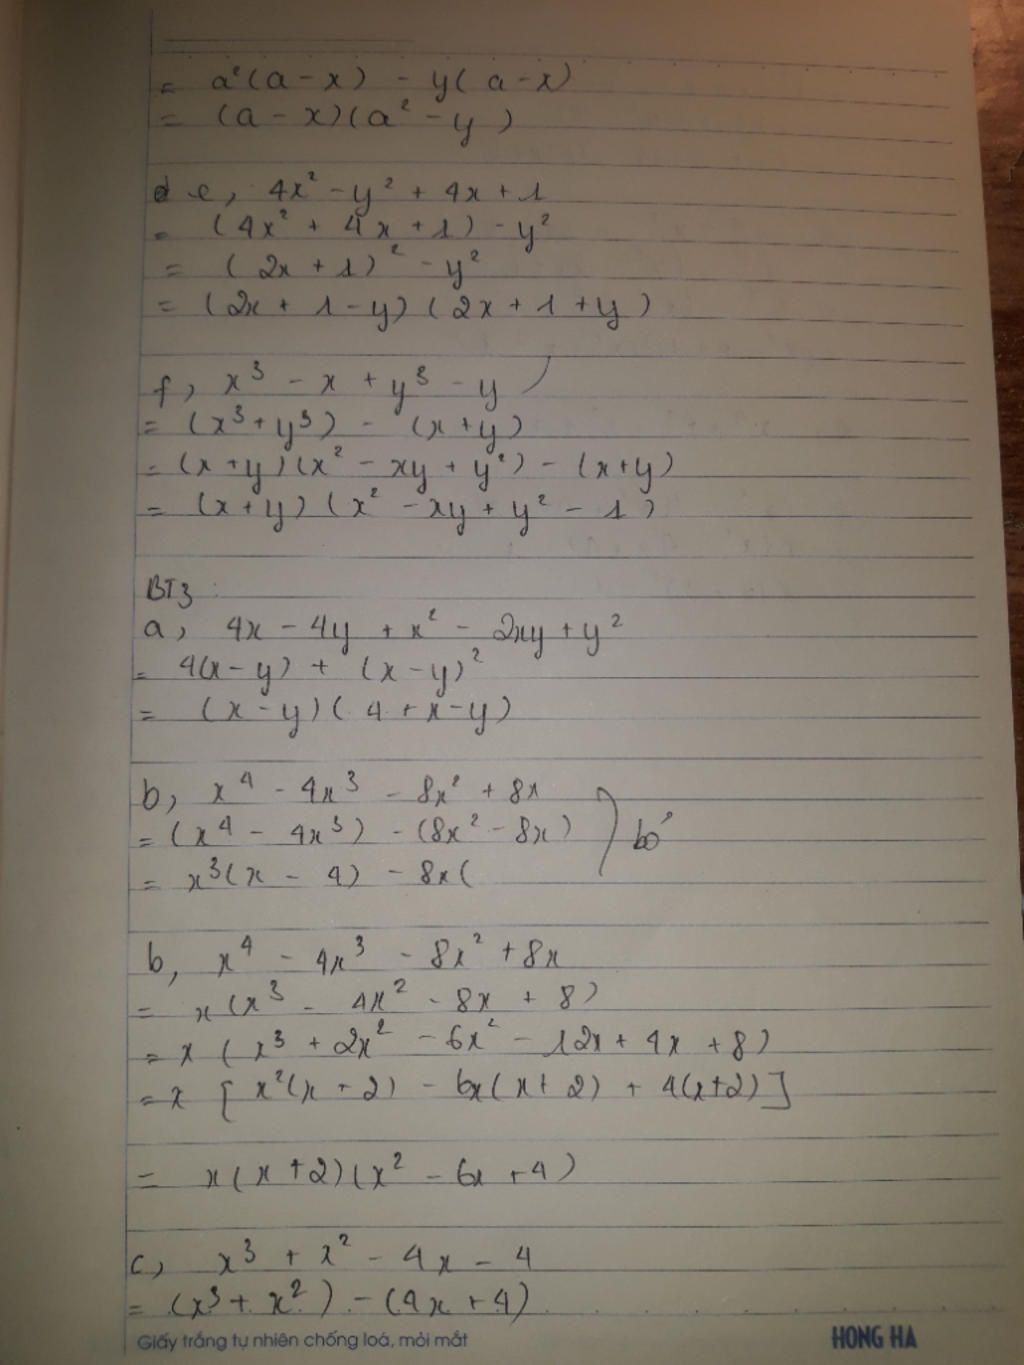 = a²(a - x) - y(a - x)
= (a - x)(a² - y)
e, 4x² - y² + 4x + 1
= (4x² + 4x + 1) - y²
= (2x + 1)² - y²
= (2x + 1 - y)(2x + 1 + y)
f, x³ - x + y³ - y
= (x³ + y³) - (x + y)
= (x + y)(x² - xy + y²) - (x + y)
= (x + y)(x² - xy + y² - 1)
BT3:
a, 4x - 4y + x² - 2xy + y²
= 4(x - y) + (x - y)²
= (x - y)(4 + x - y)
b, x⁴ - 4x³ - 8x² + 8x
= (x⁴ - 4x³) - (8x² - 8x) bỏ
= x³(x - 4) - 8x(
b, x⁴ - 4x³ - 8x² + 8x
= x(x³ - 4x² - 8x + 8)
= x(x³ + 2x² - 6x² - 12x + 4x + 8)
= x[x²(x + 2) - 6x(x + 2) + 4(x + 2)]
= x(x + 2)(x² - 6x + 4)
c, x³ + x² - 4x - 4
= (x³ + x²) - (4x + 4)
Giấy trắng tự nhiên chống loá, mỏi mắt HONG HA